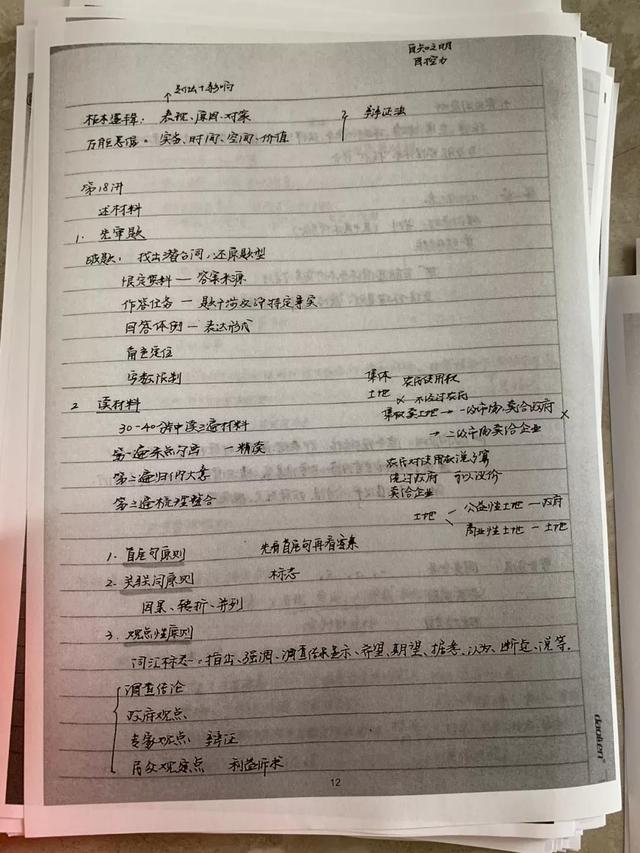 自知之明
自控力
↑ 划法+影响
根本逻辑：表现、原因、对策
2 辩证法
万能思维：实务、时间、空间、价值
第18讲
述材料
1. 先审题
破题：找出潜台词，还原题型
限定资料 — 答案来源
作答任务 — 题干涉及的特定事实
回答体例 — 表达形式
角色定位
字数限制
2 读材料
30-40分钟读三遍材料
第一遍重点勾画 — 精读
第二遍归纳大意
第三遍梳理整合
集体土地
农民使用权
× 不经过农府
集权卖土地 → 一级市场，卖给政府 ×
→ 二级市场卖给企业
农民对使用权说了算
绕过政府 可以议价
卖给企业
土地 < 公益性土地 — 政府
商业性土地 — 土地
1. 首尾句原则 先看首尾句再看答案
2. 关联词原则 标志
因果、转折、并列
3. 观点性原则
词汇标志：指出、强调、调查结果显示、希望、期望、据悉、认为、断定、说等。
调查结论
政府观点
专家观点 辩证
居众观察点 利益诉求
daolien
12